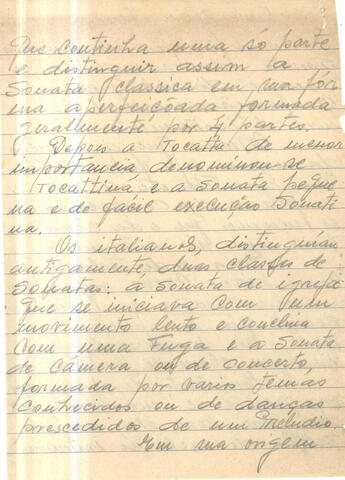 que continha uma só parte
e distinguir assim a
Sonata classica em sua fór
ma aperfeicoada formada
geralmente por 4 partes.
Depois a Tocatta de menor
importancia denominou-se
Tocattina e a Sonata peque
na e de facil execução Sonati
na.
Os italianos, distinguiram
antigamente, duas classes de
Sonatas: a Sonata de igreja
que se iniciava com um
movimento lento e concluia
com uma Fuga e a Sonata
de Câmera ou de concerto,
formada por varios temas
conhecidos ou de danças
prescedidos de um Preludio.
Em sua origem